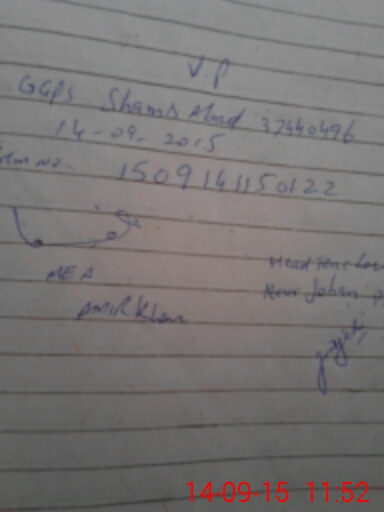 V.P
GGPS Shams Abad 37440496
14-09-2015
No. 1509141150122
MEA
AMIR Khan
Head Teacher
Noor Jahan
14-09-15 11:52